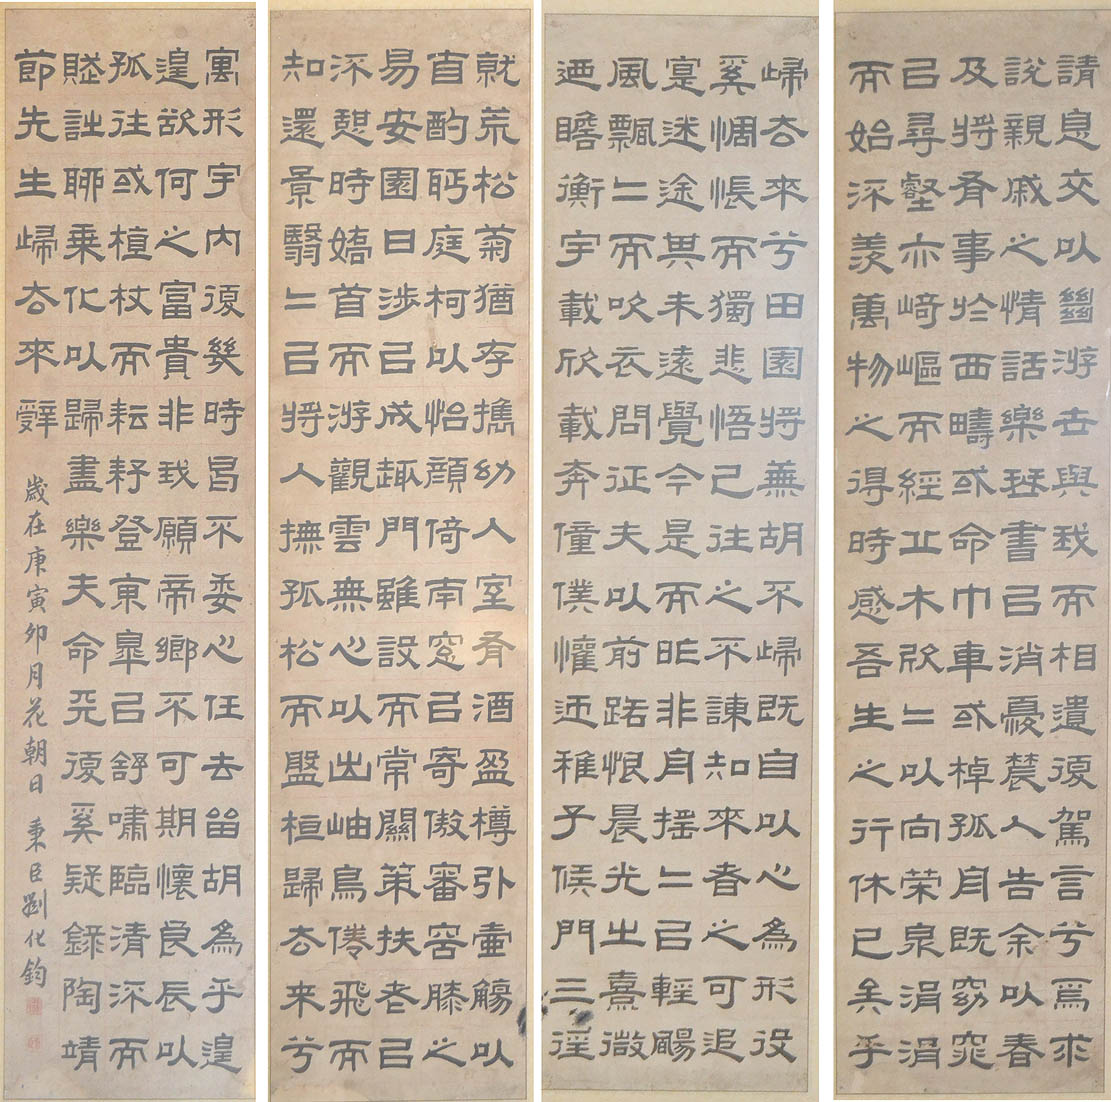 歸去來兮田園將蕪胡不歸既自以心為形役
奚惆悵而獨悲悟已往之不諫知來者之可追
寔迷途其未遠覺今是而昨非舟搖二以輕颺
風飄二而吹衣問征夫以前路恨晨光之熹微
迺瞻衡宇載欣載奔僮僕懽迎稚子候門三徑
就荒松菊猶存攜幼入室有酒盈樽引壺觴以
自酌眄庭柯以怡顏倚南窗以寄傲審容膝之
易安園日涉以成趣門雖設而常關策扶老以
流憩時矯首而游觀雲無心以出岫鳥倦飛而
知還景翳二以將入撫孤松而盤桓歸去来兮
請息交以絕游世與我而相遺復駕言兮焉求
說親戚之情話樂琴書以消憂農人告余以春
及將有事於西疇或命巾車或棹孤舟既窈窕
以尋壑亦崎嶇而經丘木欣二以向榮泉涓涓
而始流羨萬物之得時感吾生之行休已矣乎
寓形宇內復幾時曷不委心任去留胡為乎遑
遑欲何之富貴非我願帝鄉不可期懷良辰以
孤往或植杖而耘耔登東皋以舒嘯臨清流而
賦詩聊乘化以歸盡樂夫命奚復奚疑錄陶靖
節先生歸去來辭
歲在庚寅卯月花朝日 秉臣劉化鈞